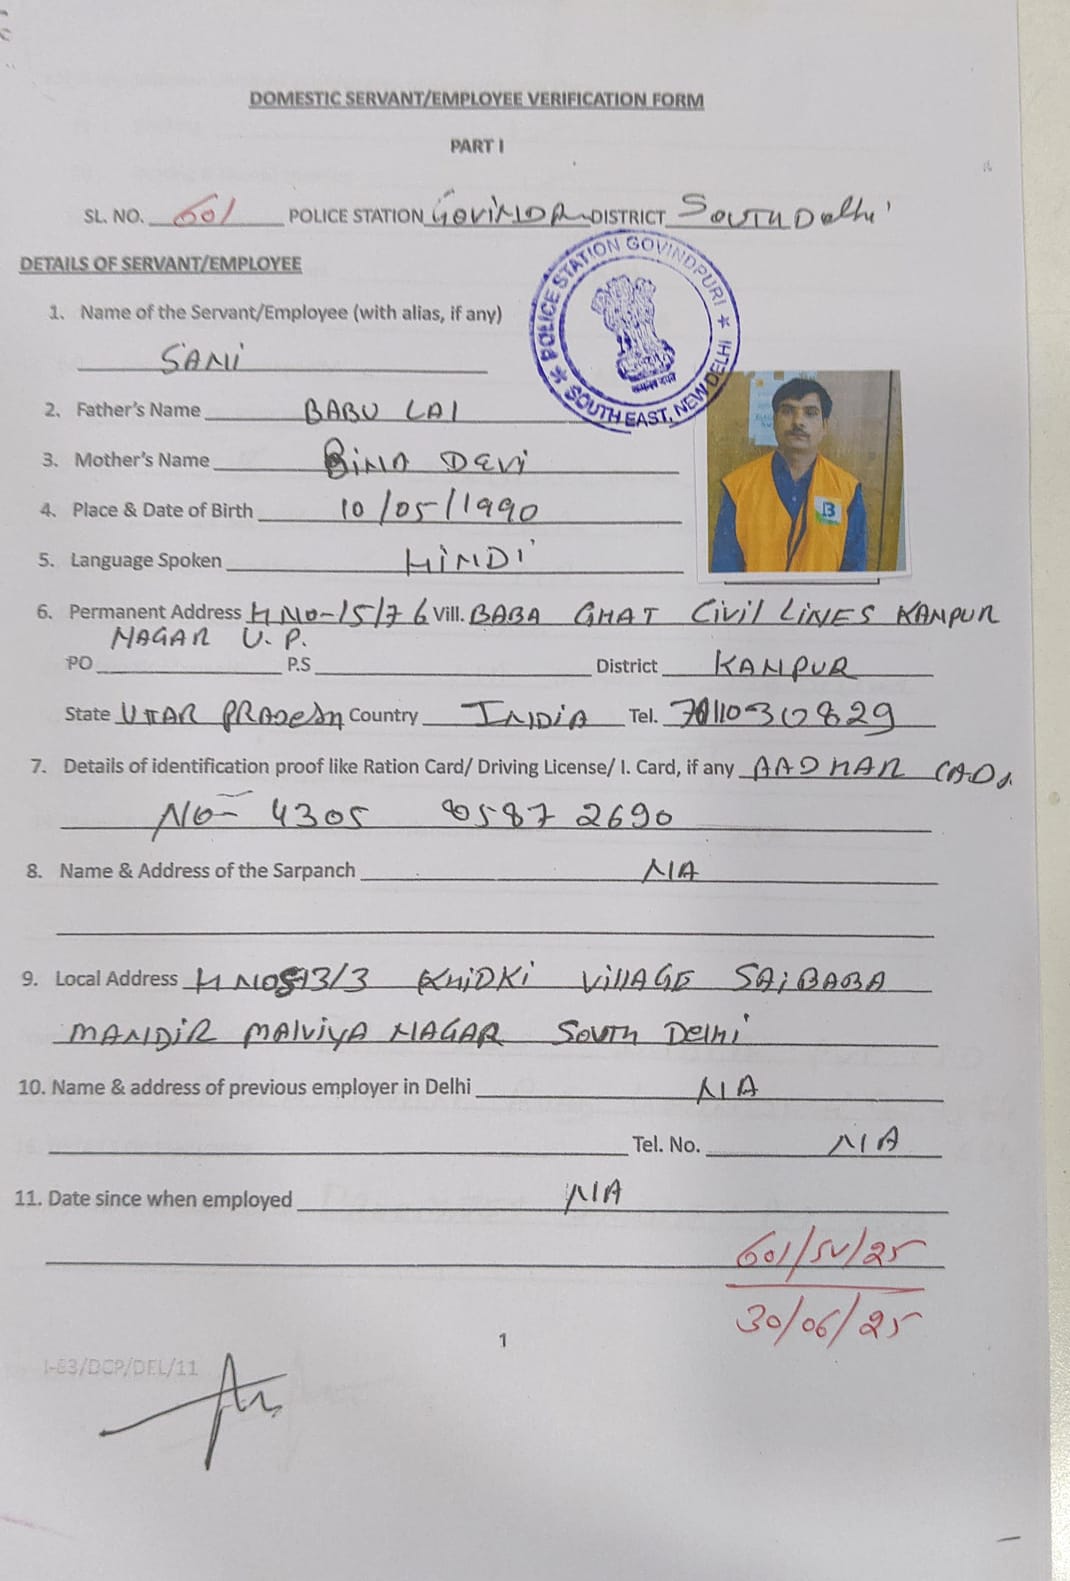 DOMESTIC SERVANT/EMPLOYEE VERIFICATION FORM
PART I
SL. NO. 601 POLICE STATION GOVINDA DISTRICT SOUTH Delhi
DETAILS OF SERVANT/EMPLOYEE
POLICE STATION GOVINDPURI
SOUTH EAST, NEW DELHI
1. Name of the Servant/Employee (with alias, if any)
SANI
2. Father's Name BABU LAl
3. Mother's Name BiNA DEVi
4. Place & Date of Birth 10/05/1990
5. Language Spoken HiNDi
B
6. Permanent Address H NO-15/76 Vill. BABA GHAT CiVil LiNES KANPUR
NAGAR U.P.
PO P.S District KANPUR
State UTTAR PRADESH Country INDiA Tel.
7. Details of identification proof like Ration Card/ Driving License/ I. Card, if any AADHAR CAD
NO- 4305 8587 2690
8. Name & Address of the Sarpanch N/A
9. Local Address H NO 13/3 KHiDKi VillAGE SAiBABA
MANDiR MAlViYA NAGAR SOUTH DElHi
10. Name & address of previous employer in Delhi N/A
Tel. No. N/A
11. Date since when employed N/A
601/SV/25
30/06/25
1
I-63/DCP/DEL/11